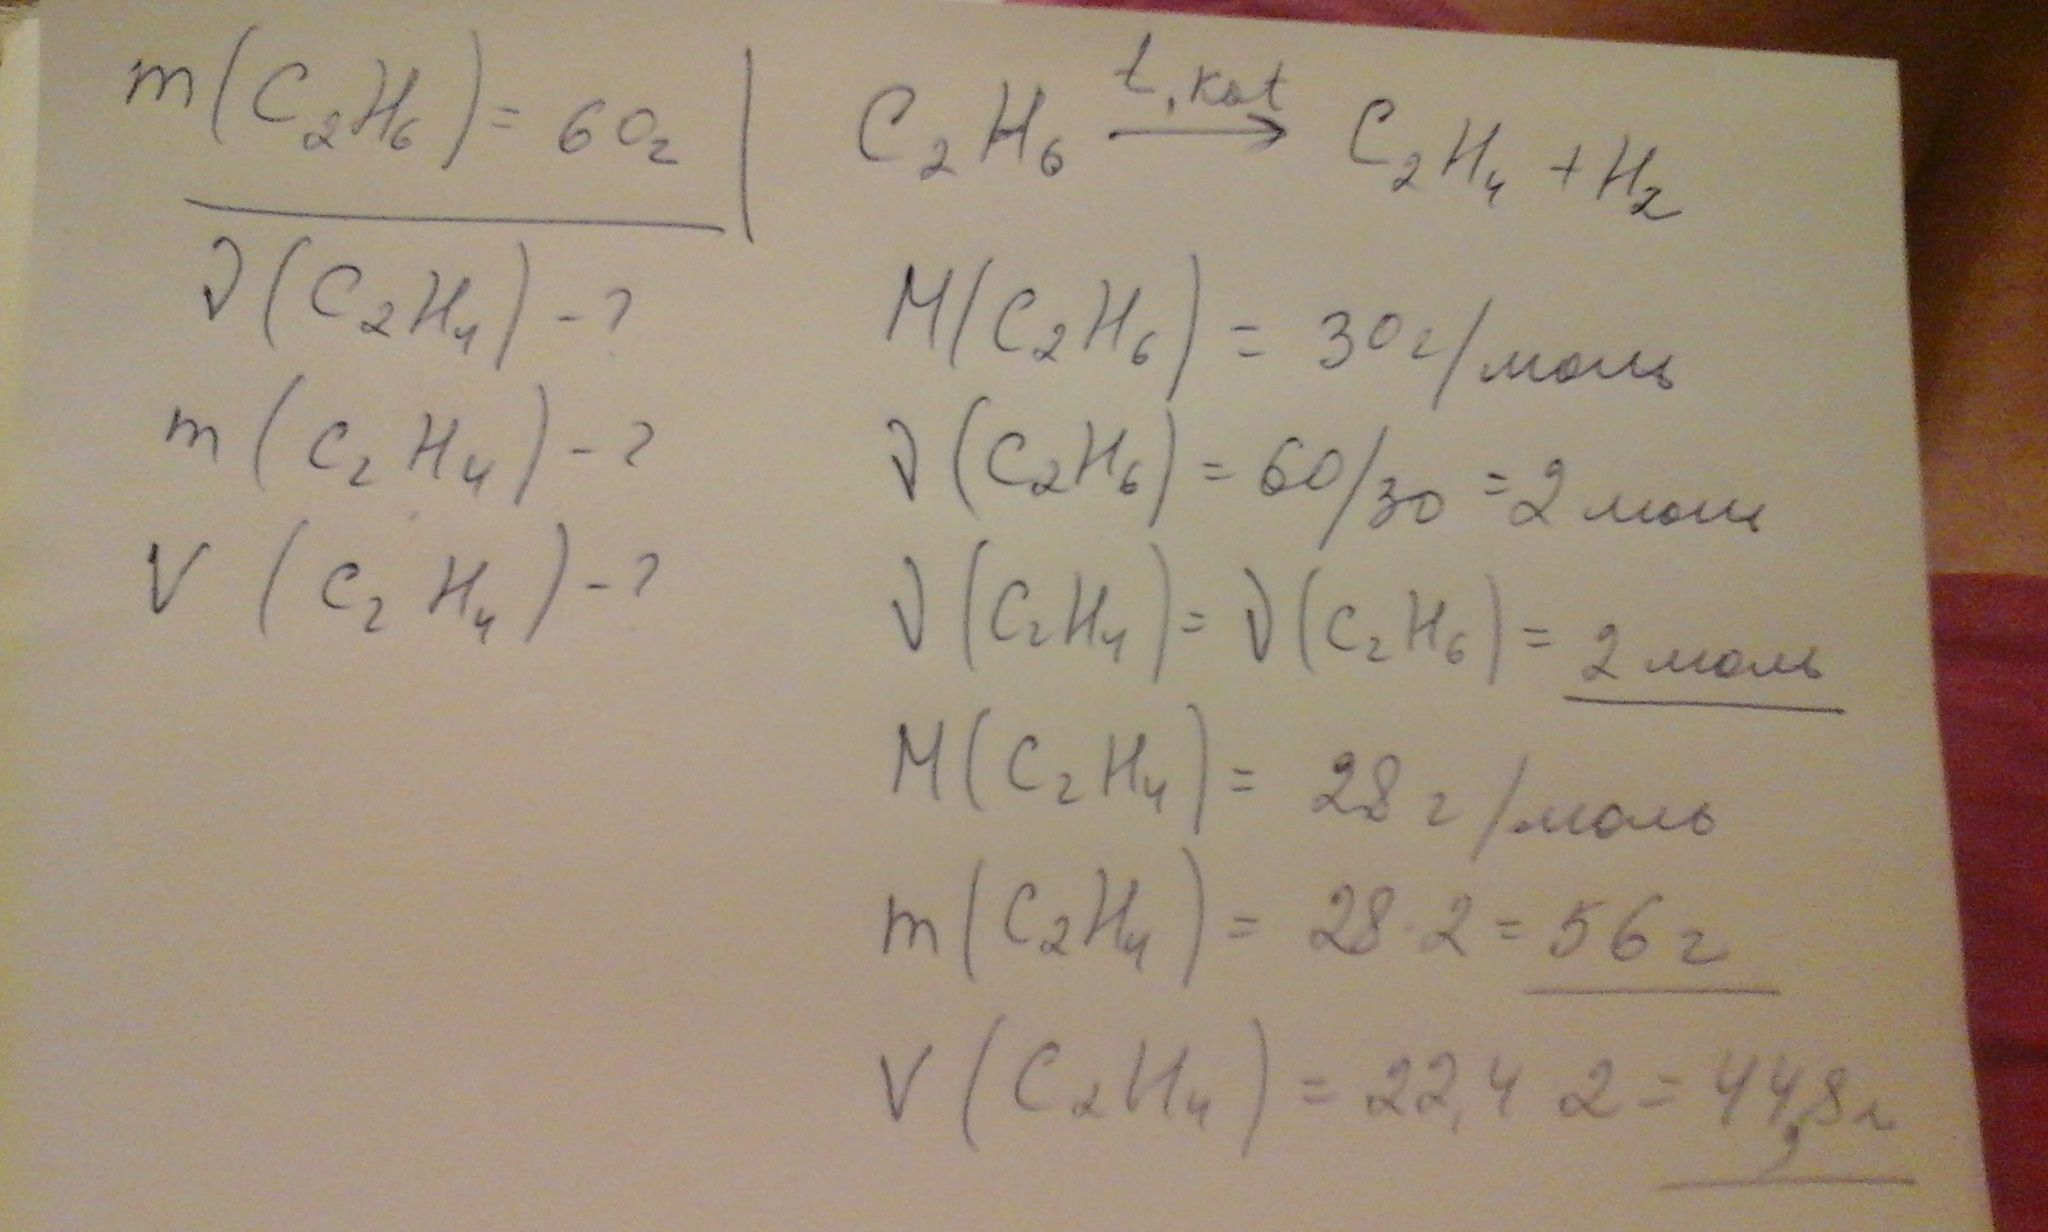 m(C₂H₆) = 60г
ν(C₂H₄) - ?
m(C₂H₄) - ?
V(C₂H₄) - ?
t, kat
C₂H₆ → C₂H₄ + H₂
M(C₂H₆) = 30г/моль
ν(C₂H₆) = 60/30 = 2 моль
ν(C₂H₄) = ν(C₂H₆) = 2 моль
M(C₂H₄) = 28г/моль
m(C₂H₄) = 28·2 = 56г
V(C₂H₄) = 22,4 2 = 44,8л